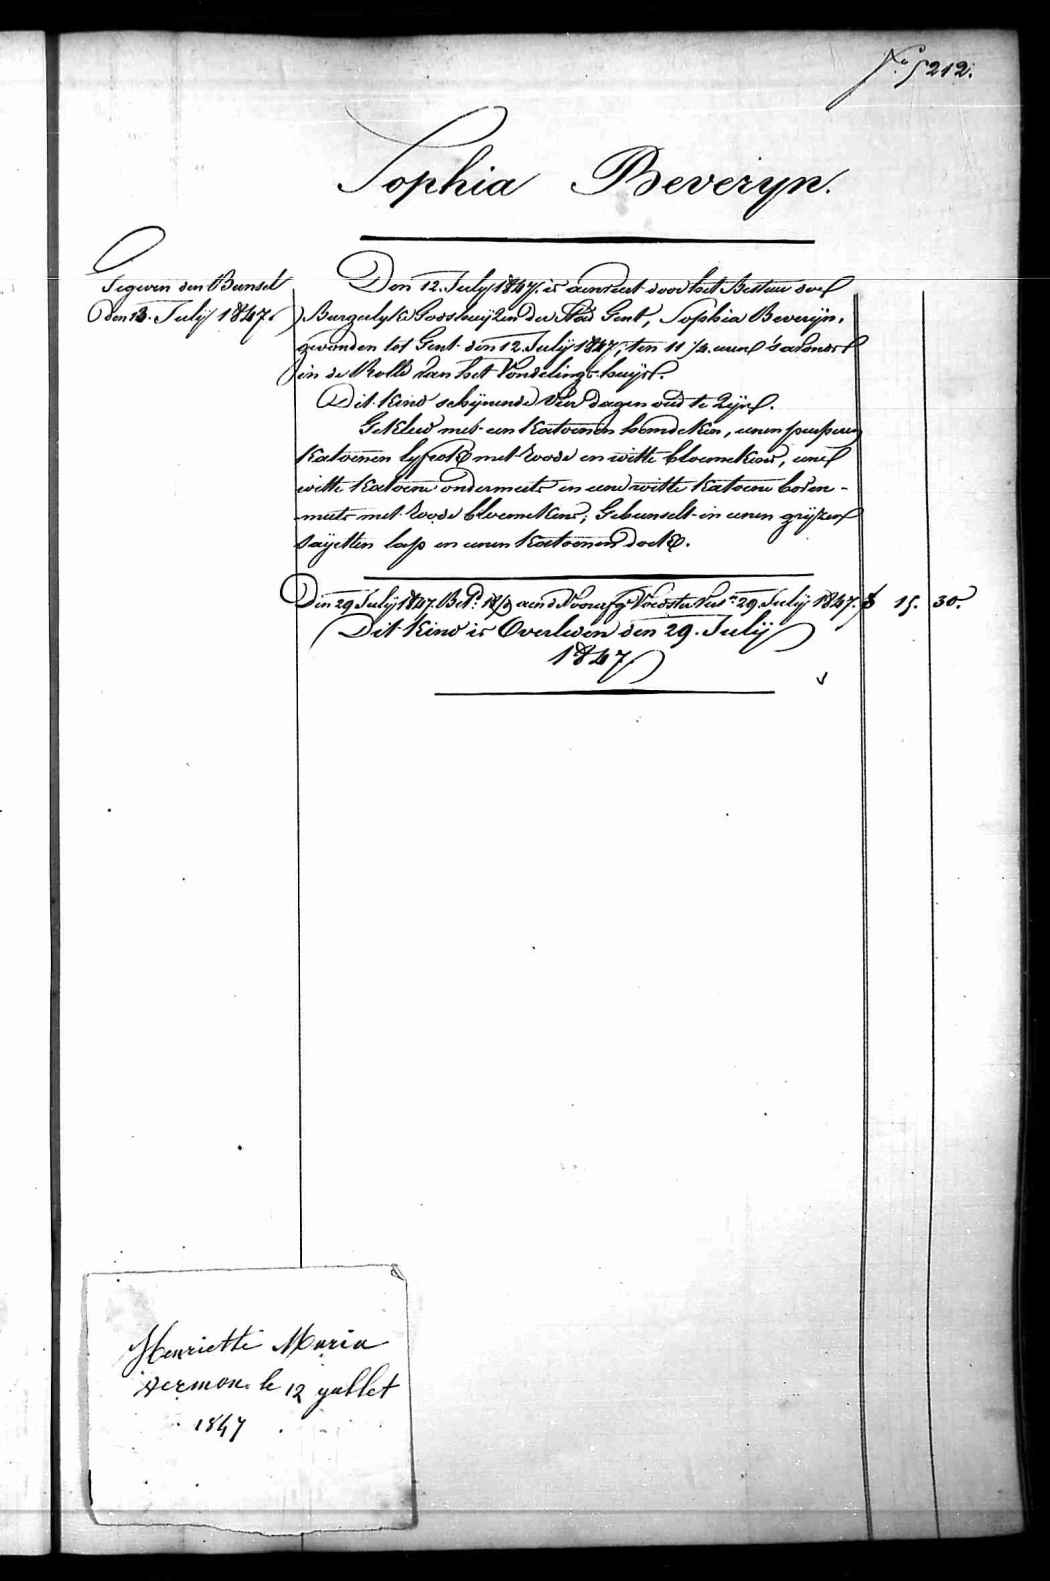 N.º 5212.
Sophia Beveryn.
Gegeven den Bunsel
den 13. July 1847.
Den 12. July 1847. is aenveert door het Bestuer der
Burgelyke Godshuijzen der Stad Gent, Sophia Beveryn,
gevonden tot Gent den 12. July 1847, ten 11 ¼ uren 's avonds
in de Rolle van het Vondelings-huijs.
Dit Kind schijnende Vier dagen oud te Zijn.
Gekleed met een Katoenen hemdeken, eenen purperen
Katoenen lyfrok met roode en witte bloemekens, eene
witte Katoene ondermuts en eene witte Katoene boven-
muts met roode bloemekens; Gebunselt in eenen grijzen
Sayetten lap en eenen Katoenen doek.
Den 29 July 1847. Bet. aen de Voorzg. Voedster 29. July 1847. 15. 30.
Dit Kind is Overleden den 29. July
1847.
Henriette Maria
vermon. le 12 jullet
1847